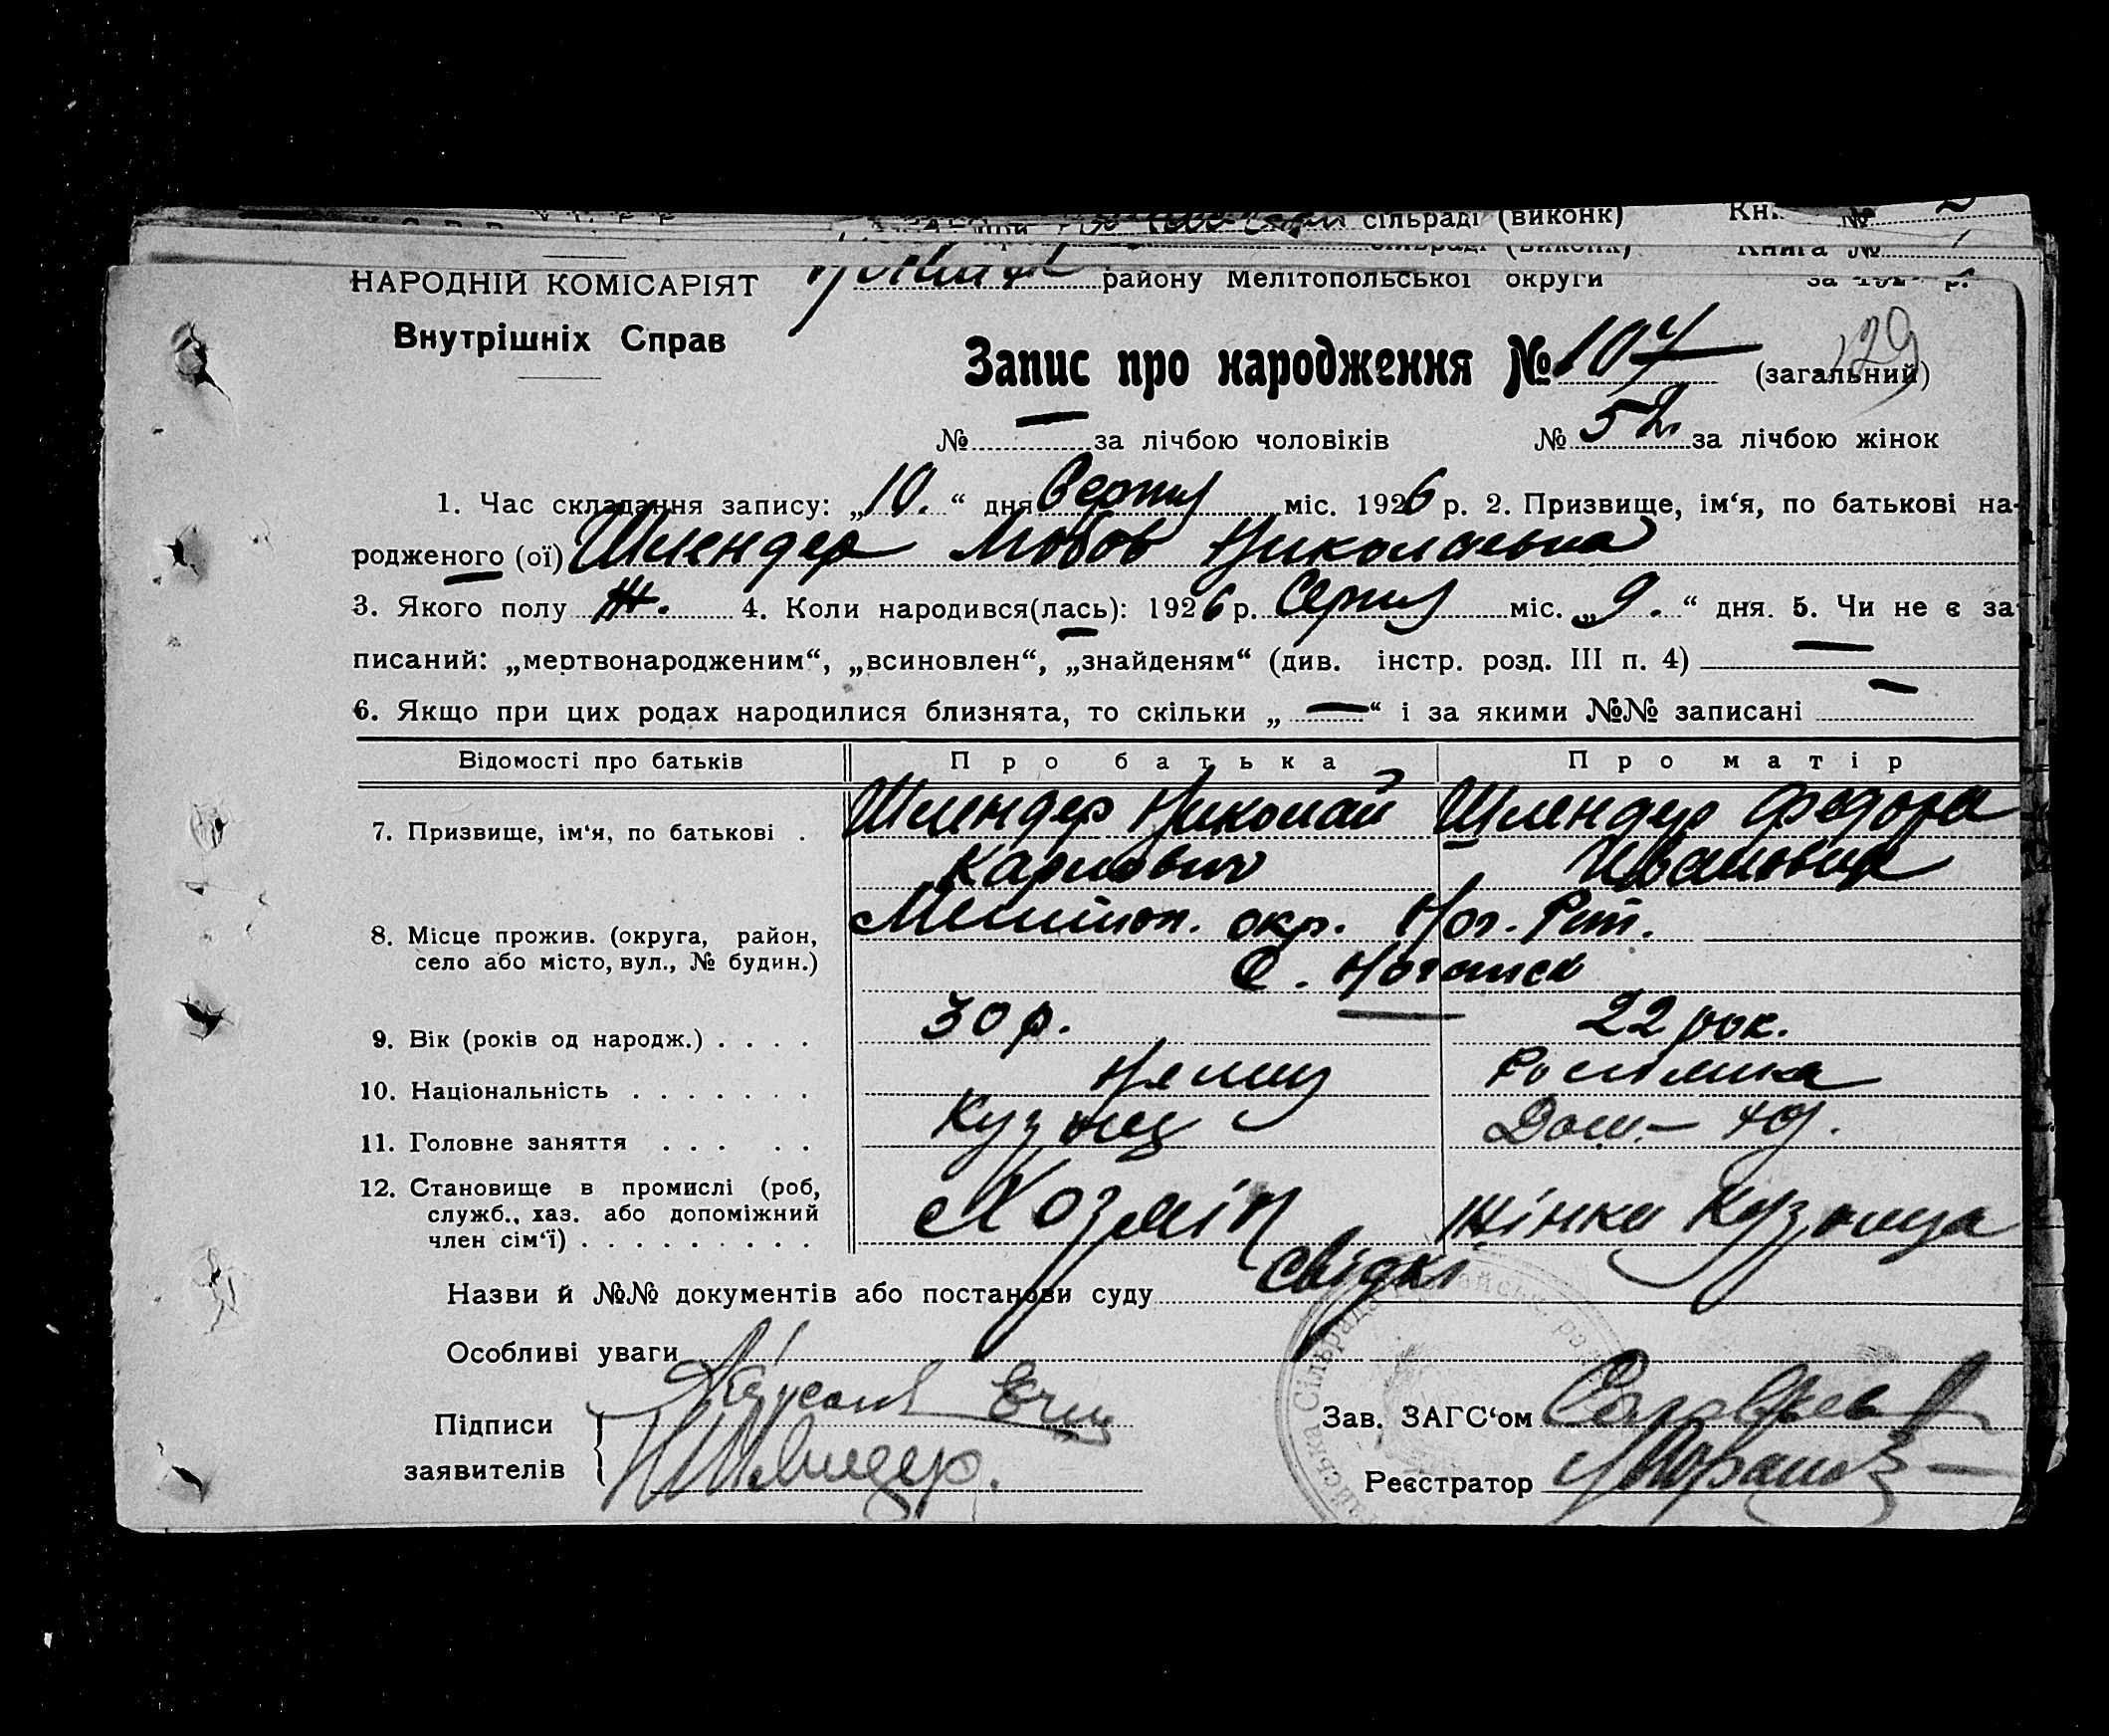 сільраді (виконк) Кн. №
Книга №
НАРОДНІЙ КОМІСАРІЯТ району Мелітопольської округи
Внутрішніх Справ
Запис про народження № 107 (загальний) 129
№ — за лічбою чоловіків № 52 за лічбою жінок
1. Час складання запису: „10.“ дня Серпня міс. 1926 р. 2. Призвище, ім‘я, по батькові на-
родженого (ої) Шлендер Любов Николаевна
3. Якого полу Ж. 4. Коли народився(лась): 1926 р. Серпня міс. „9.“ дня. 5. Чи не є за-
писаний: „мертвонародженим“, „всиновлен“, „знайденям“ (див. інстр. розд. III п. 4) —
6. Якщо при цих родах народилися близнята, то скільки „—“ і за якими №№ записані —
Відомості про батьків Про батька Про матір
7. Призвище, ім‘я, по батькові . Шлендер Николай Шлендер Федора
Карлович Ивановна
8. Місце прожив. (округа, район, Мелитоп. окр. Ног. Рай.
село або місто, вул., № будин.) С. Ногайск
9. Вік (років од народж.) . . . . 30 р. 22 рок.
10. Національність . . . . . . . Немец Росіянка
11. Головне заняття . . . . . Кузнец Дом.
12. Становище в промислі (роб, Хозяін Жінка Кузнеца
служб., хаз. або допоміжний
член сім‘ї) . . . . . . . . .
Назви й №№ документів або постанови суду свідкі
Особливі уваги
Підписи
заявителів Н Шлендер.
Зав. ЗАГС‘ом
Реєстратор